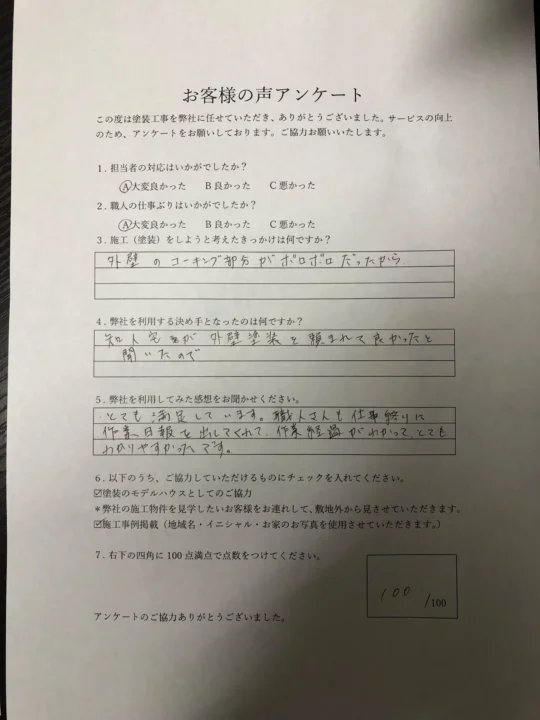 お客様の声アンケート
この度は塗装工事を弊社に任せていただき、ありがとうございました。サービスの向上
のため、アンケートをお願いしております。ご協力お願いいたします。
1. 担当者の対応はいかがでしたか？
Ⓐ大変良かった B 良かった C 悪かった
2. 職人の仕事ぶりはいかがでしたか？
Ⓐ大変良かった B 良かった C 悪かった
3. 施工（塗装）をしようと考えたきっかけは何ですか？
外壁のコーキング部分がボロボロだったから
4. 弊社を利用する決め手となったのは何ですか？
知人宅が外壁塗装を頼まれて良かったと
聞いたので
5. 弊社を利用してみた感想をお聞かせください。
とても満足しています。職人さんも仕事終りに
作業日報を出してくれて、作業経過がわかって、とても
わかりやすかったです。
6. 以下のうち、ご協力していただけるものにチェックを入れてください。
☑塗装のモデルハウスとしてのご協力
＊弊社の施工物件を見学したいお客様をお連れして、敷地外から見させていただきます。
☑施工事例掲載（地域名・イニシャル・お家のお写真を使用させていただきます。）
7. 右下の四角に 100 点満点で点数をつけてください。
100 /100
アンケートのご協力ありがとうございました。